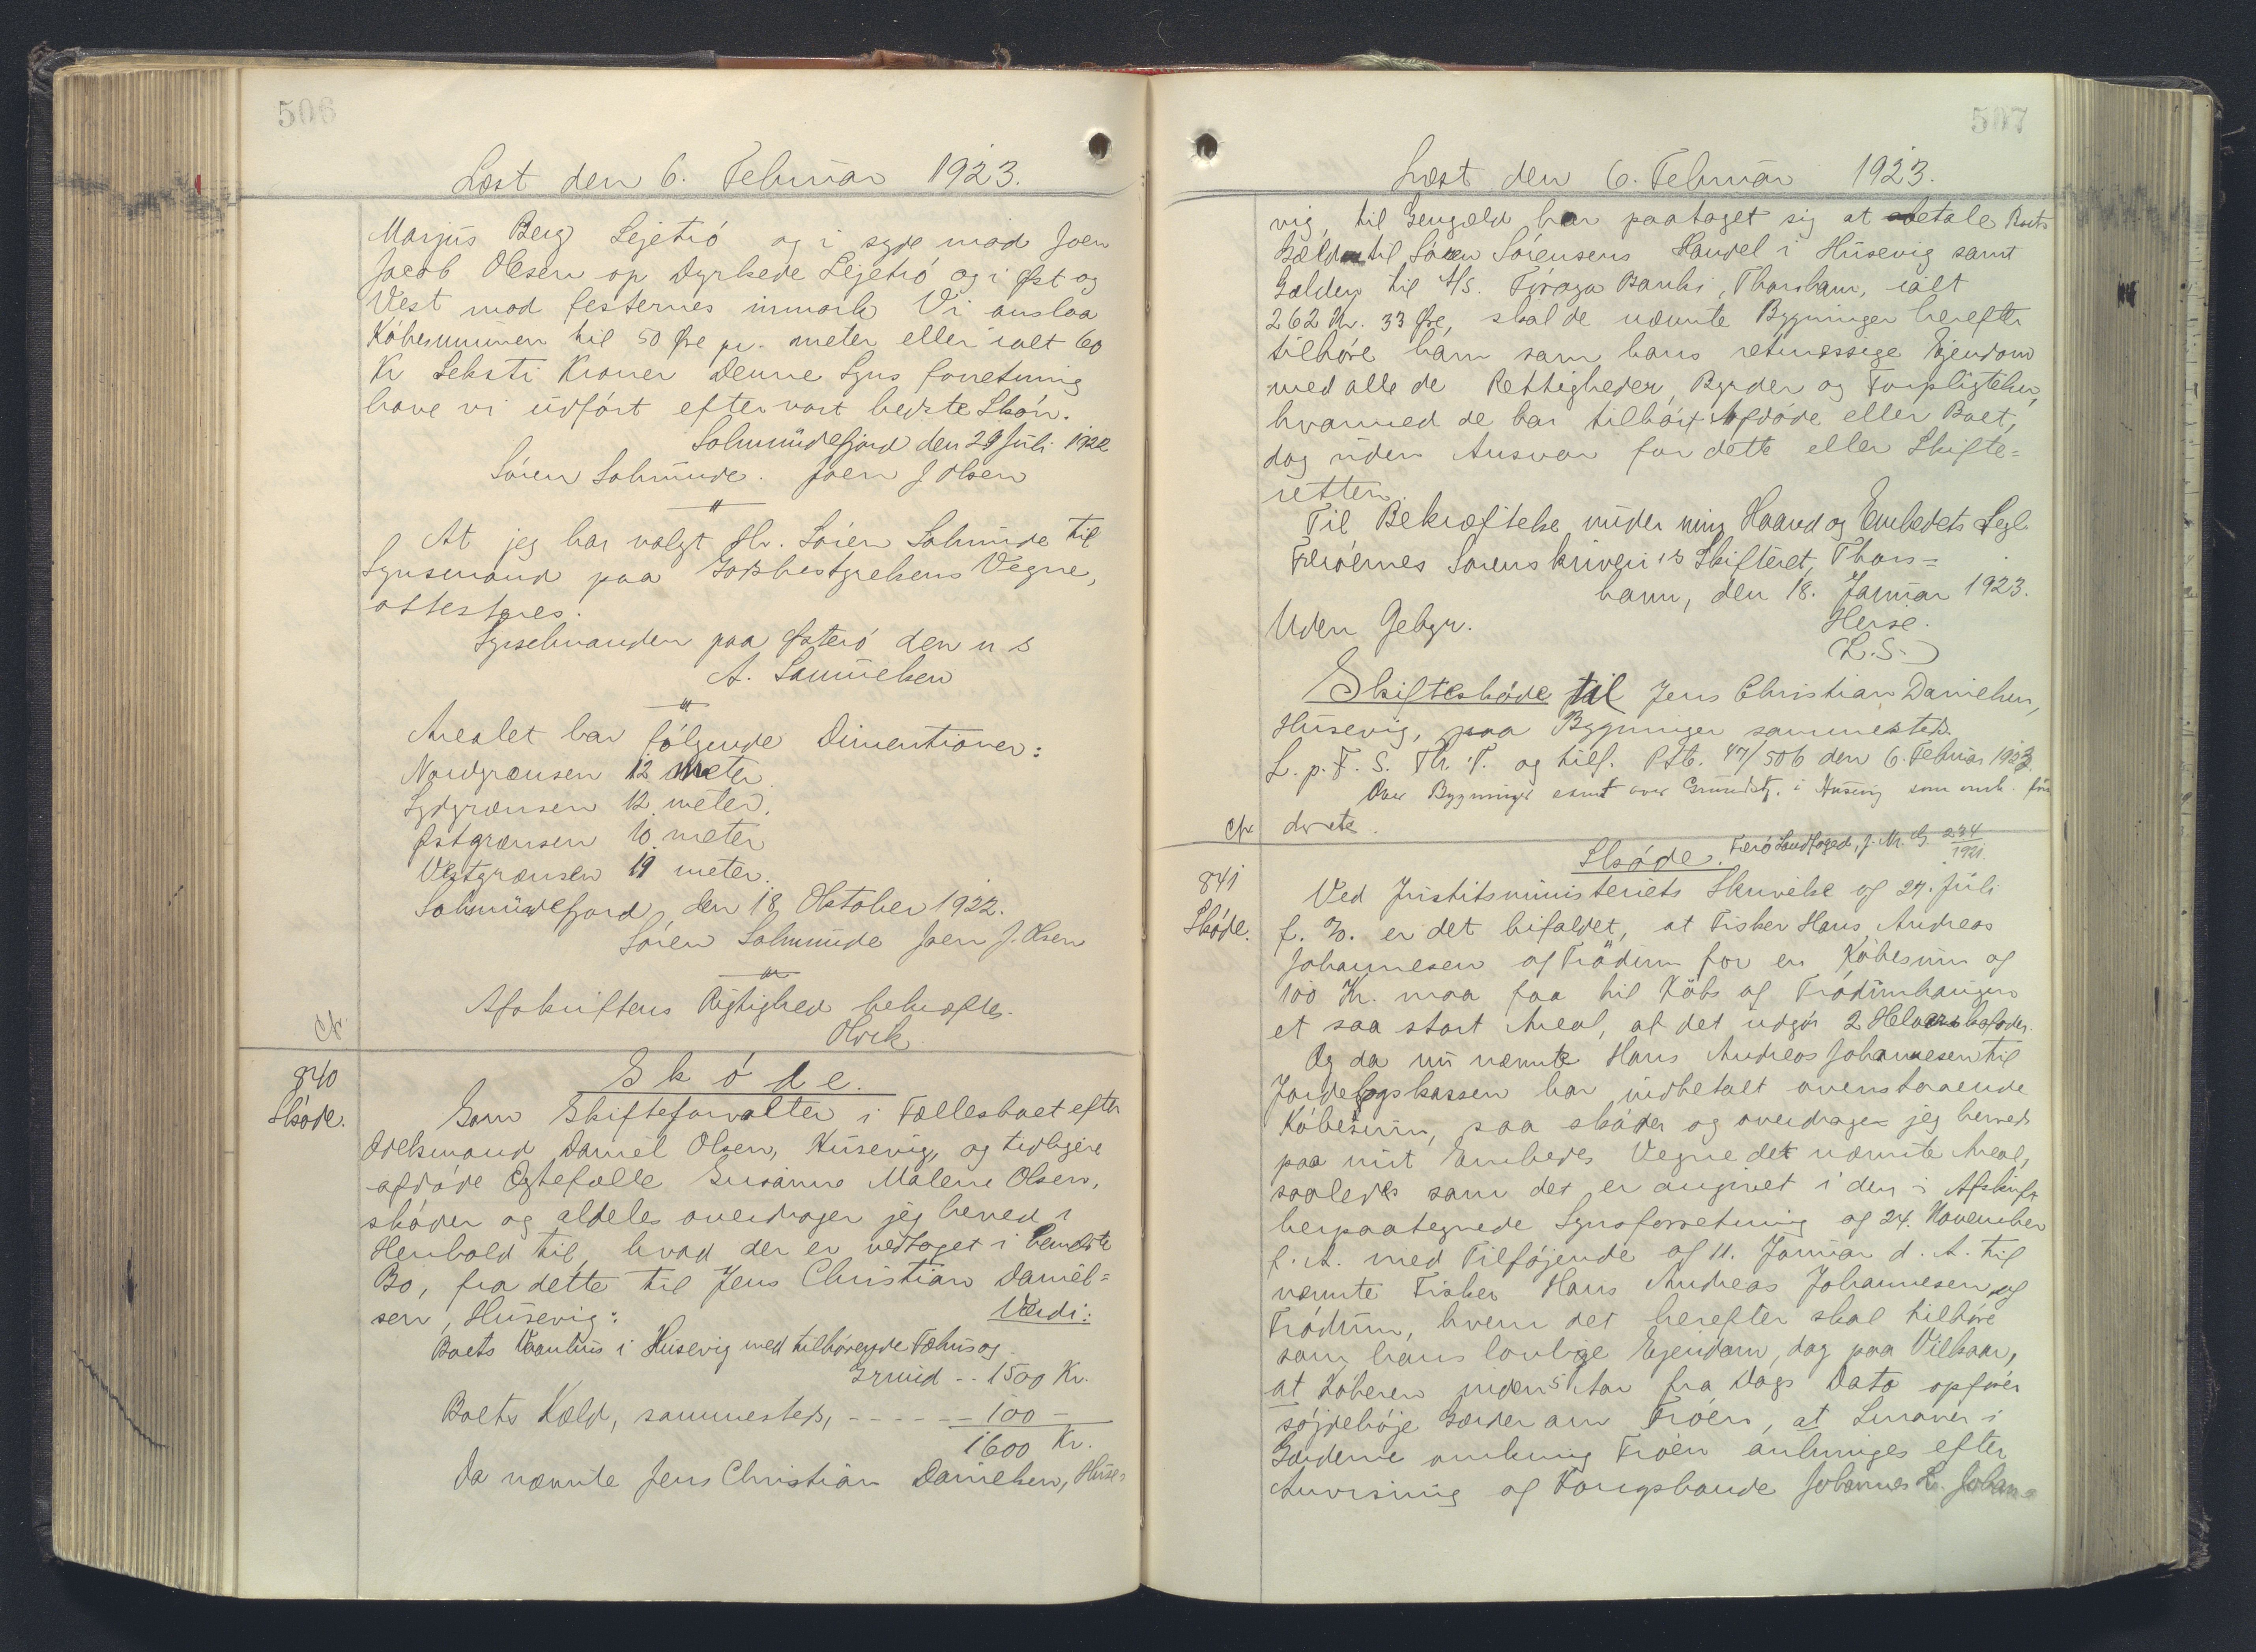 506
Læst den 6. Februar 1923.
Marjus Berg Lejetrö og i syd mod Joen
Jacob Olesen op dyrkede Lejetrö og i Øst og
Vest mod festernes inmark Vi anslaa
Köbesummen til 50 Øre pr. meter eller ialt 60
Kr Seksti Kroner Denne Syns forretning
have vi udfört efter vort bedste Skön.
Solmundefjord den 29 Juli 1922
Sören Solmunde. Joen J Olsen
At jeg har valgt Hr. Sören Solmunde til
Synsmand paa Godsbestyrelsens Vegne,
attesteres.
Sysselmanden paa Österö den u s
A. Samuelsen
Arealet har fölgende Dimentioner:
Nordgrænsen 12 meter
Sydgrænsen 12 meter.
Østgrænsen 10 meter
Vestgrænsen 19 meter.
Solmundefjord, den 18 Oktober 1922.
Sören Solmunde Joen J. Olsen
Afskriftens Rigtighed bekræftes.
Cfr.
840
Skøde.
Skóde.
Som Skifteforvalter i Fællesboet efter
Odelsmand Daniel Olsen, Husevig, og tidligere
afdöde Ægtefælle Susanne Malene Olsen,
sköder og aldeles overdrager jeg herved i
Henhold til, hvad der er vedtaget i bemeldte
Bo, fra dette til Jens Christian Daniel=
sen, Husevig: Værdi:
Boets Vaanhus i Husevig med tilhørende Fæhus og
Grund -- 1500 Kr.
Boets Kæld, sammesteds, ------ 100 -
1600 Kr.
Da nævnte Jens Christian Danielsen, Huse=
507
Læst den 6. Februar 1923.
vig, til Gengæld har paataget sig at betale Boets
Gæld til Sören Sörensens Handel i Husevig samt
Gælden til A/S. Föroya Banki, Thorshavn, ialt
262 Kr. 33 Øre, skal de nævnte Bygninger herefter
tilhöre ham som hans retmæssige Ejendom
med alle de Rettigheder, Byrder og Forpligtelser,
hvormed de har tilhört Afdöde eller Boet,
dog uden Ansvar for dette eller Skifte=
retten.
Til Bekræftelse under min Haand og Embedets Segl.
Færöernes Sorenskriveri s Skifteret, Thors=
havn, den 18. Januar 1923.
Uden Gebyr. Heise.
(L.S.)
Skifteskøde til Jens Christian Danielsen,
Husevig, paa Bygninger sammesteds.
L. p. F. S. Th. T. og tilf. Ptb. 47/506 den 6. Februar 1923.
Over Bygninger samt over Grundstk. i Husevig som
Cfr.
841
Skøde.
Skøde. Færö Landfoged, J. Nr. 234/1921.
Ved Justitsministeriets Skrivelse af 27. Juli
f. A. er det bifaldet, at Fisker Hans Andreas
Johannesen af Trödum for en Köbesum af
100 Kr. maa faa til Köbs af Trödumhaugen
et saa stort Areal, at det udgör 2 Helaarskofoder.
Og da nu nævnte Hans Andreas Johannesen til
Jordebogskassen har indbetalt ovenstaaende
Köbesum, saa sköder og overdrager jeg herved
paa mit Embedes Vegne det nævnte Areal,
saaledes som det er angivet i den i Afskrift
herpaategnede Synsforretning af 24. November
f. A. med Tilföjende af 11. Januar d. A. til
nævnte Fisker Hans Andreas Johannesen af
Trödum, hvem det herefter skal tilhöre
som hans lovlige Ejendom, dog paa Vilkaar,
at Köberen inden 5 Aar fra Dags Dato opförer
söjdehöje Gærder om Tröen, at Smaaver i
Gærderne omkring Tröen anbringes efter
Anvisning af Kongsbonde Johannes H. Johan=